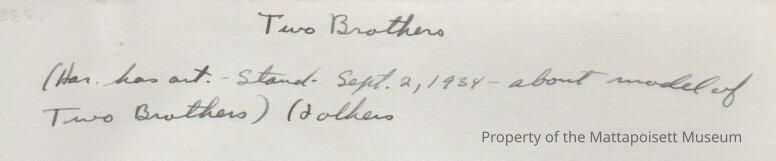 Two Brothers
(Har. has art. - Stand - Sept. 2, 1934 - about model of
Two Brothers) (2 others
Property of the Mattapoisett Museum